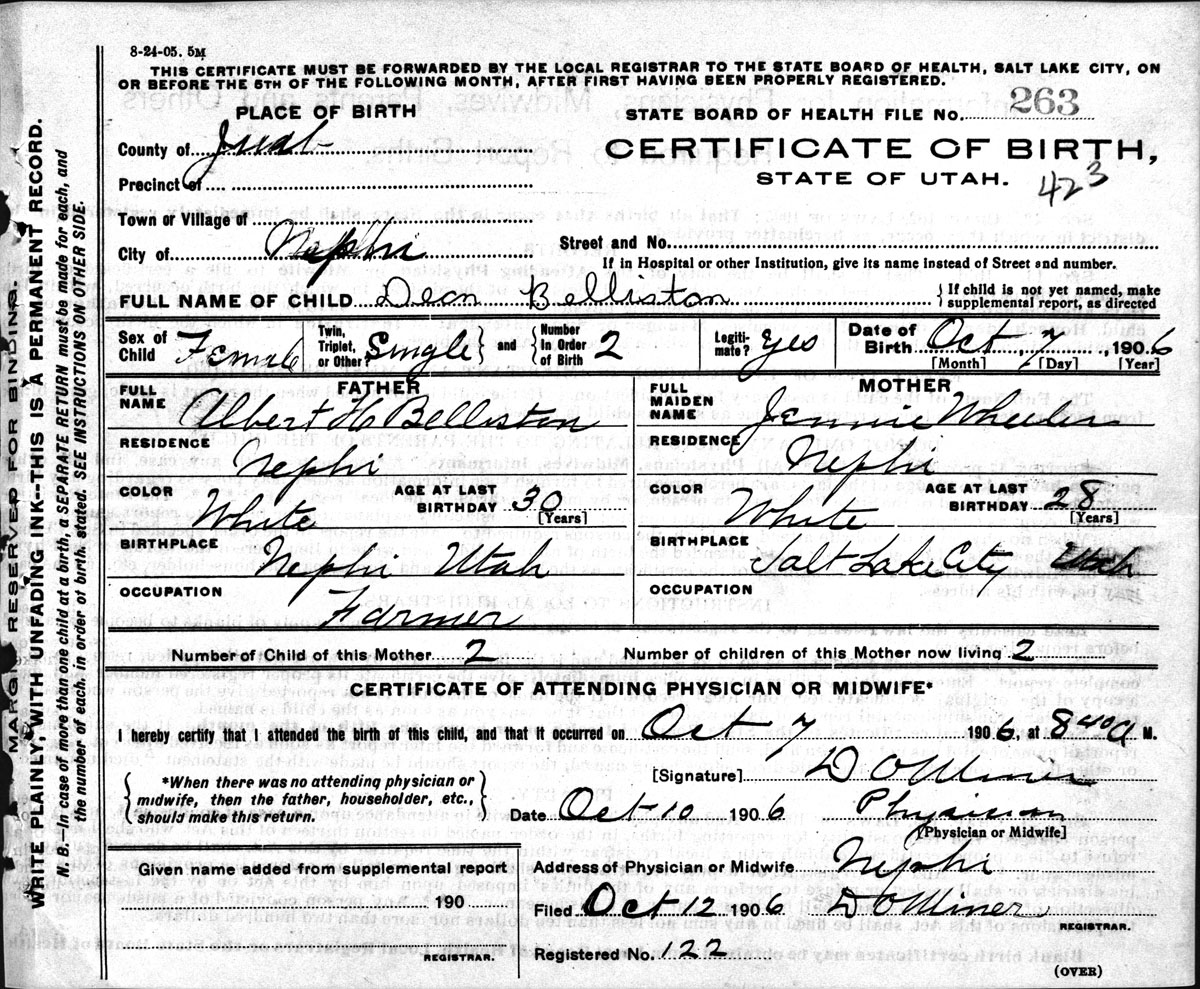 8-24-05. 5M
THIS CERTIFICATE MUST BE FORWARDED BY THE LOCAL REGISTRAR TO THE STATE BOARD OF HEALTH, SALT LAKE CITY, ON
OR BEFORE THE 5TH OF THE FOLLOWING MONTH, AFTER FIRST HAVING BEEN PROPERLY REGISTERED.
PLACE OF BIRTH
STATE BOARD OF HEALTH FILE NO. 263
County of Juab
CERTIFICATE OF BIRTH,
STATE OF UTAH.
423
Precinct of
Town or Village of
City of Nephi
Street and No.
If in Hospital or other Institution, give its name instead of Street and number.
FULL NAME OF CHILD Deon Belliston
{If child is not yet named, make
supplemental report, as directed
Sex of Child Female
Twin, Triplet, or Other? Single } and { Number In Order of Birth 2
Legitimate? Yes
Date of Birth Oct, 7, 1906
[Month] [Day] [Year]
FATHER
FULL NAME Albert H Belliston
RESIDENCE Nephi
COLOR White
AGE AT LAST BIRTHDAY 30
[Years]
BIRTHPLACE Nephi Utah
OCCUPATION Farmer
MOTHER
FULL MAIDEN NAME Jennie Wheeler
RESIDENCE Nephi
COLOR White
AGE AT LAST BIRTHDAY 28
[Years]
BIRTHPLACE Salt Lake City Utah
OCCUPATION
Number of Child of this Mother 2
Number of children of this Mother now living 2
CERTIFICATE OF ATTENDING PHYSICIAN OR MIDWIFE*
I hereby certify that I attended the birth of this child, and that it occurred on Oct 7 1906, at 8 40 a M.
{*When there was no attending physician or
midwife, then the father, householder, etc.,
should make this return.}
[Signature] D O Miner
Date Oct-10 1906 Physician
(Physician or Midwife]
Given name added from supplemental report
190
REGISTRAR.
Address of Physician or Midwife Nephi
Filed Oct 12 1906 D O Miner
REGISTRAR.
Registered No. 122
(OVER)
MARGIN RESERVED FOR BINDING.
WRITE PLAINLY, WITH UNFADING INK—THIS IS A PERMANENT RECORD.
N. B.—In case of more than one child at a birth, a SEPARATE RETURN must be made for each, and
the number of each, in order of birth, stated. SEE INSTRUCTIONS ON OTHER SIDE.